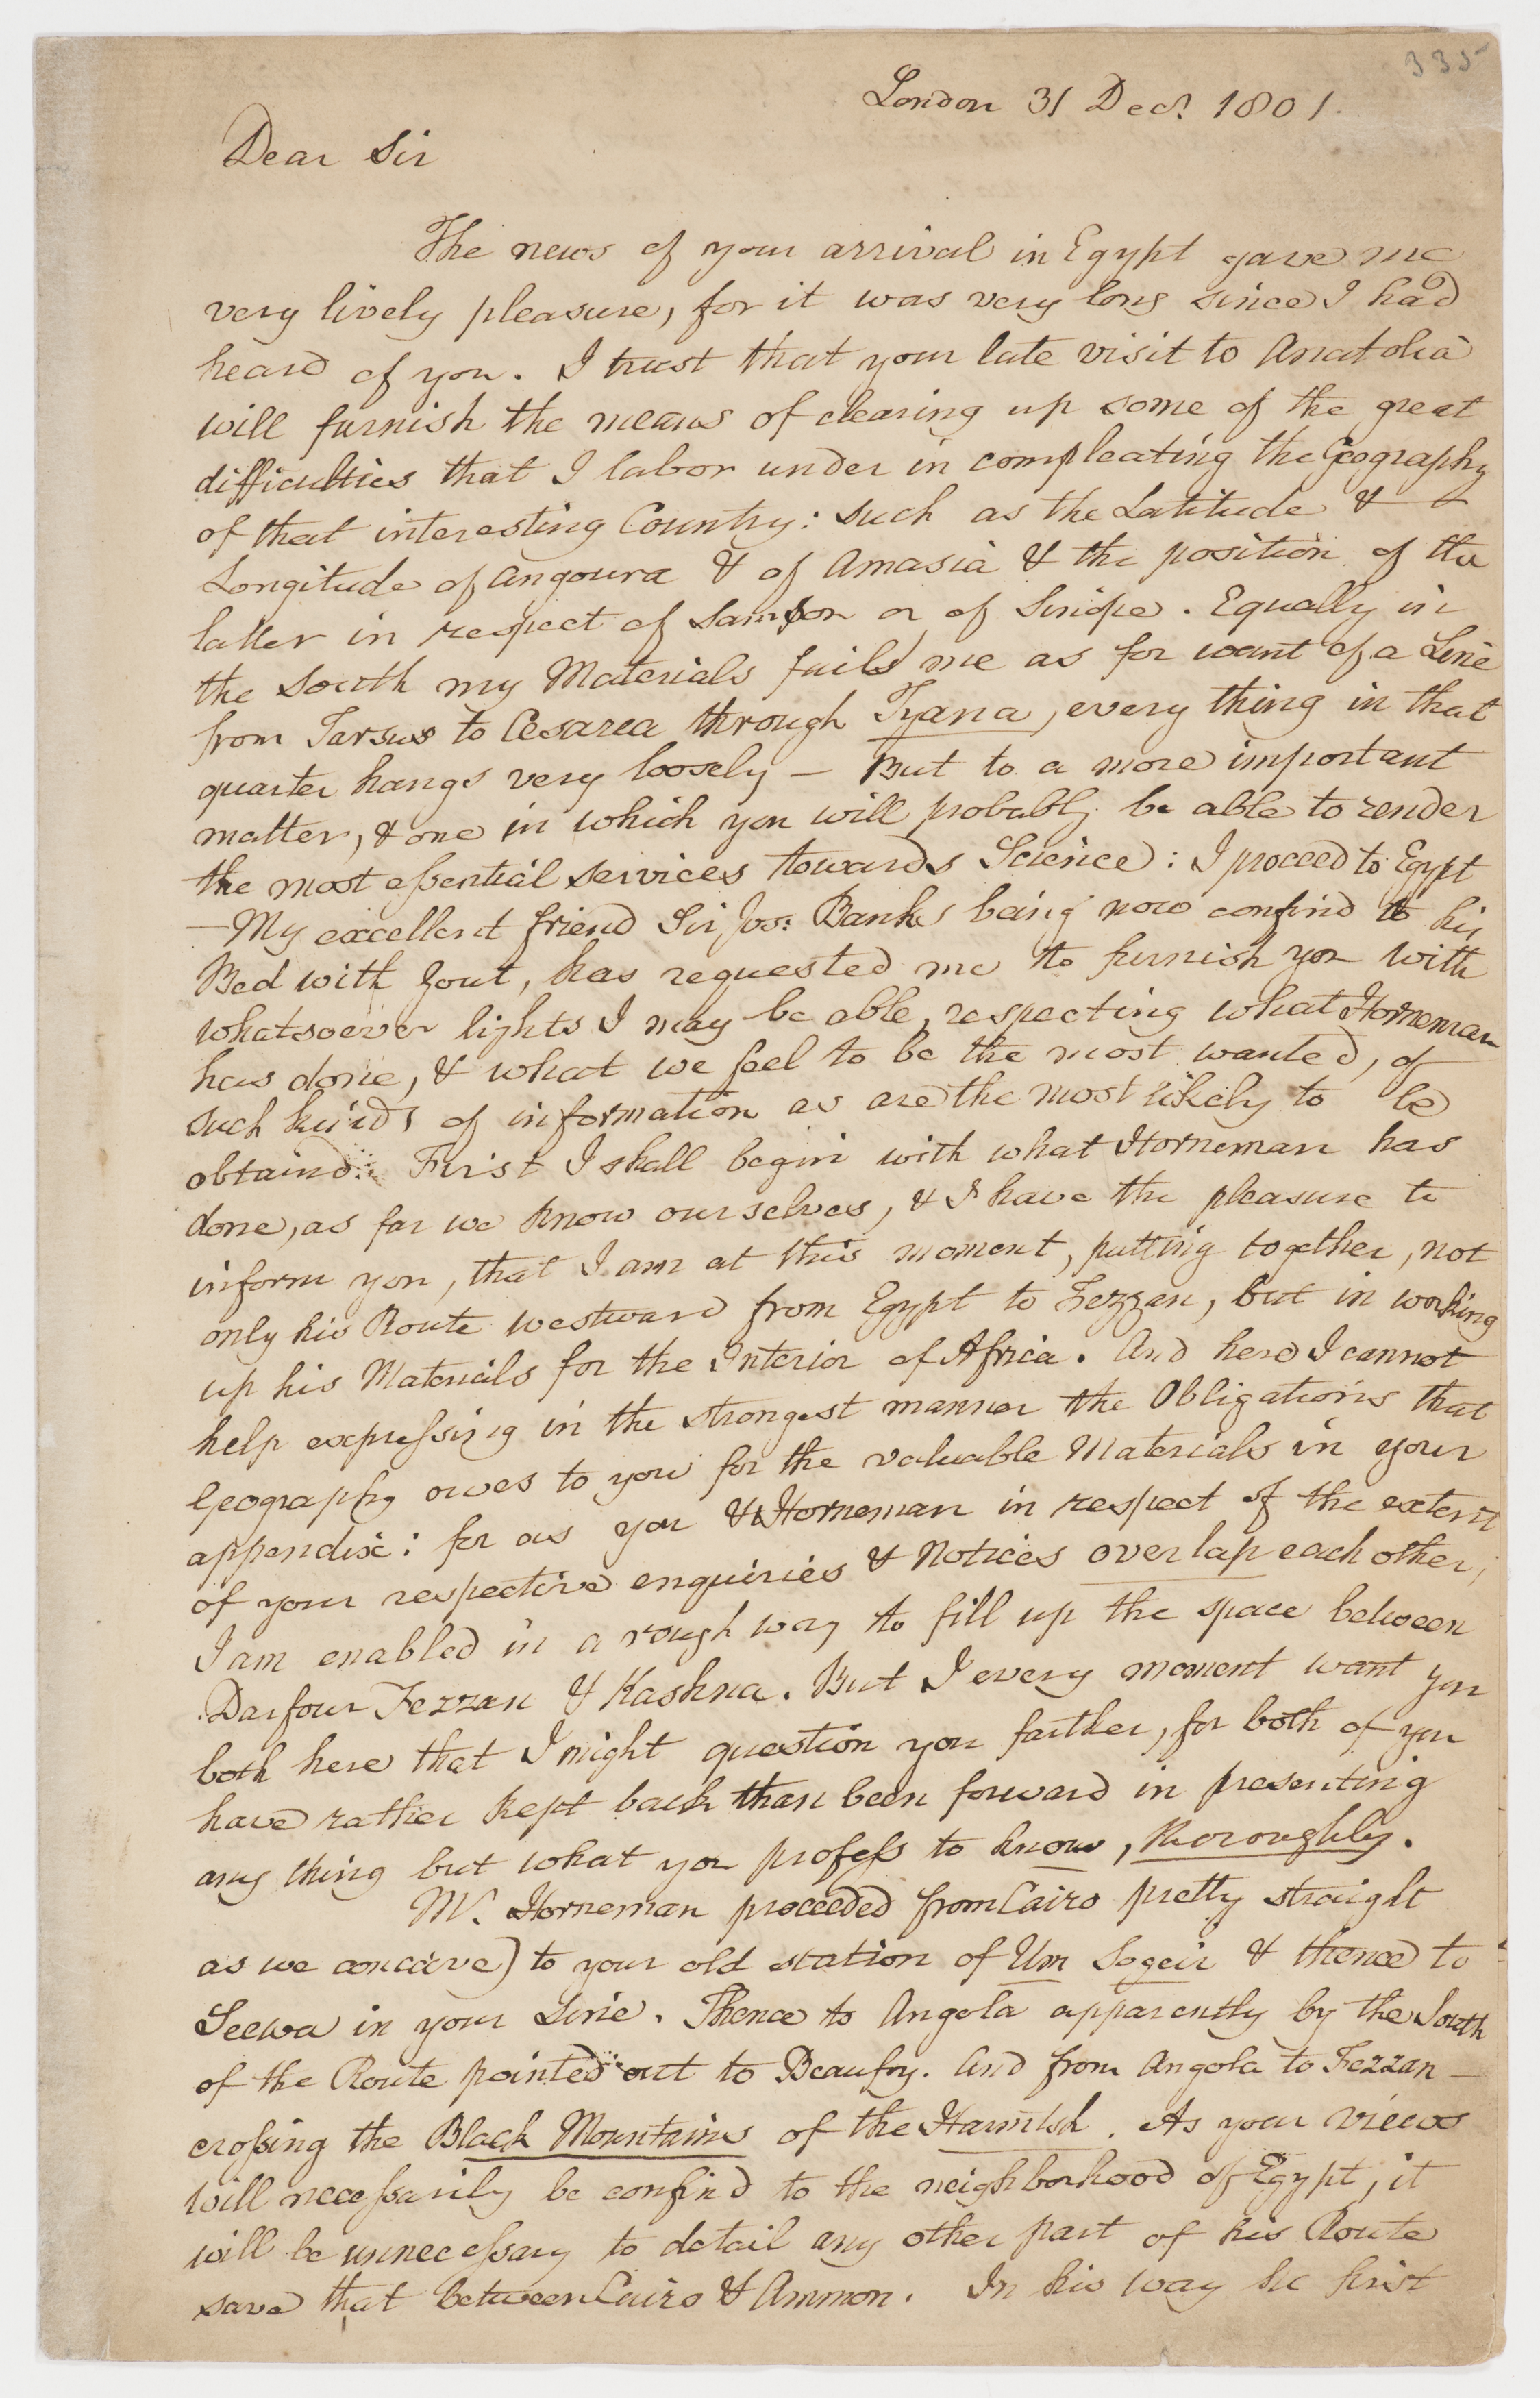 335
London 31 Decr. 1801.
Dear Sir
The news of your arrival in Egypt gave me
very lively pleasure, for it was very long since I had
heard of you. I trust that your late visit to Anatolia
will furnish the means of clearing up some of the great
difficulties that I labor under in compleating the Geography
of that interesting Country: such as the Latitude &
Longitude of Angoura & of Amasia & the position of the
latter in respect of Samson or of Sinope. Equally in
the South my Materials fails me as for want of a Line
from Tarsus to Cesarea through Tyana, every thing in that
quarter hangs very loosely — But to a more important
matter, & one in which you will probably be able to render
the most essential services towards Science: I proceed to Egypt
— My excellent friend Sir Jos: Banks being now confin'd to his
Bed with Gout, has requested me to furnish you with
whatsoever lights I may be able, respecting what Horneman
has done, & what we feel to be the most wanted, of
such kinds of information as are the most likely to be
obtain'd. First I shall begin with what Horneman has
done, as far we know ourselves, & I have the pleasure to
inform you, that I am at this moment, putting together, not
only his Route westward from Egypt to Fezzan, but in working
up his Materials for the Interior of Africa. And here I cannot
help expressing in the strongest manner the Obligations that
Geography owes to you for the valuable Materials in your
appendix: for as you & Horneman in respect of the extent
of your respective enquiries & Notices overlap each other,
I am enabled in a rough way to fill up the space between
Darfour Fezzan & Kashna. But I every moment want you
both here that I might question you farther, for both of you
have rather kept back than been forward in presenting
any thing but what you profess to know, thoroughly.
Mr. Horneman proceeded from Cairo pretty straight
as we conceive) to your old station of Um Sogeir & thence to
Seewa in your Line. Thence to Angela apparently by the South
of the Route pointed out to Beaufoy. And from Angela to Fezzan —
crossing the Black Mountains of the Harutsh. As your views
will necessarily be confin'd to the neighborhood of Egypt, it
will be unnecessary to detail any other part of his Route
save that between Cairo & Ammon. In his way he first